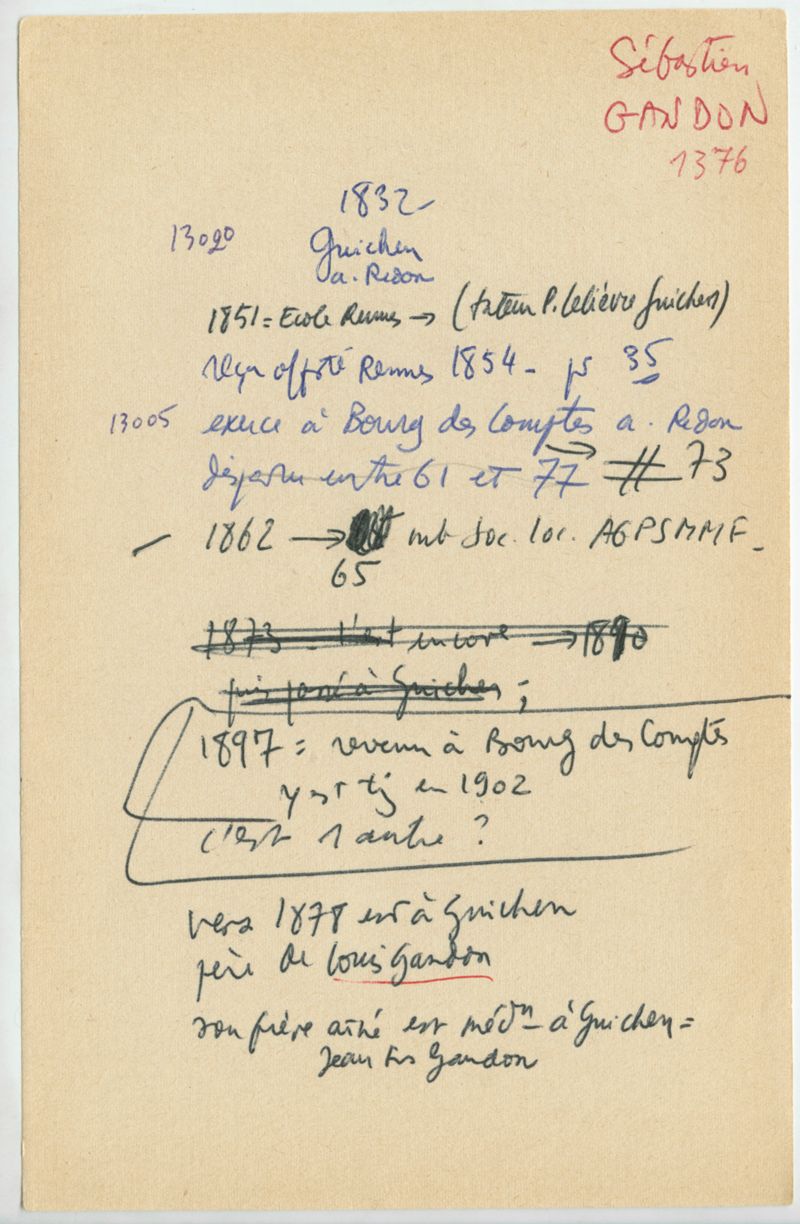 Sébastien
GANDON
1376
1832
13020 Guichen
a. Redon
1851 = Ecole Rennes → (tuteur P. Lelièvre Guichen)
reçu offté Rennes 1854 - ps 35
13005 exerce à Bourg des Comptes a. Redon
disparu entre 61 et 77 → # 73
- 1862 → mb Soc. loc. AGPSMMF_
65
1873 - l'est encore → 1890
puis passé à Guichen ;
1897 = revenu à Bourg des Comptes
y est tj en 1902
c'est 1 autre ?
vers 1878 est à Guichen
père de Louis Gandon
son frère aîné est médn à Guichen =
Jean Frs Gandon